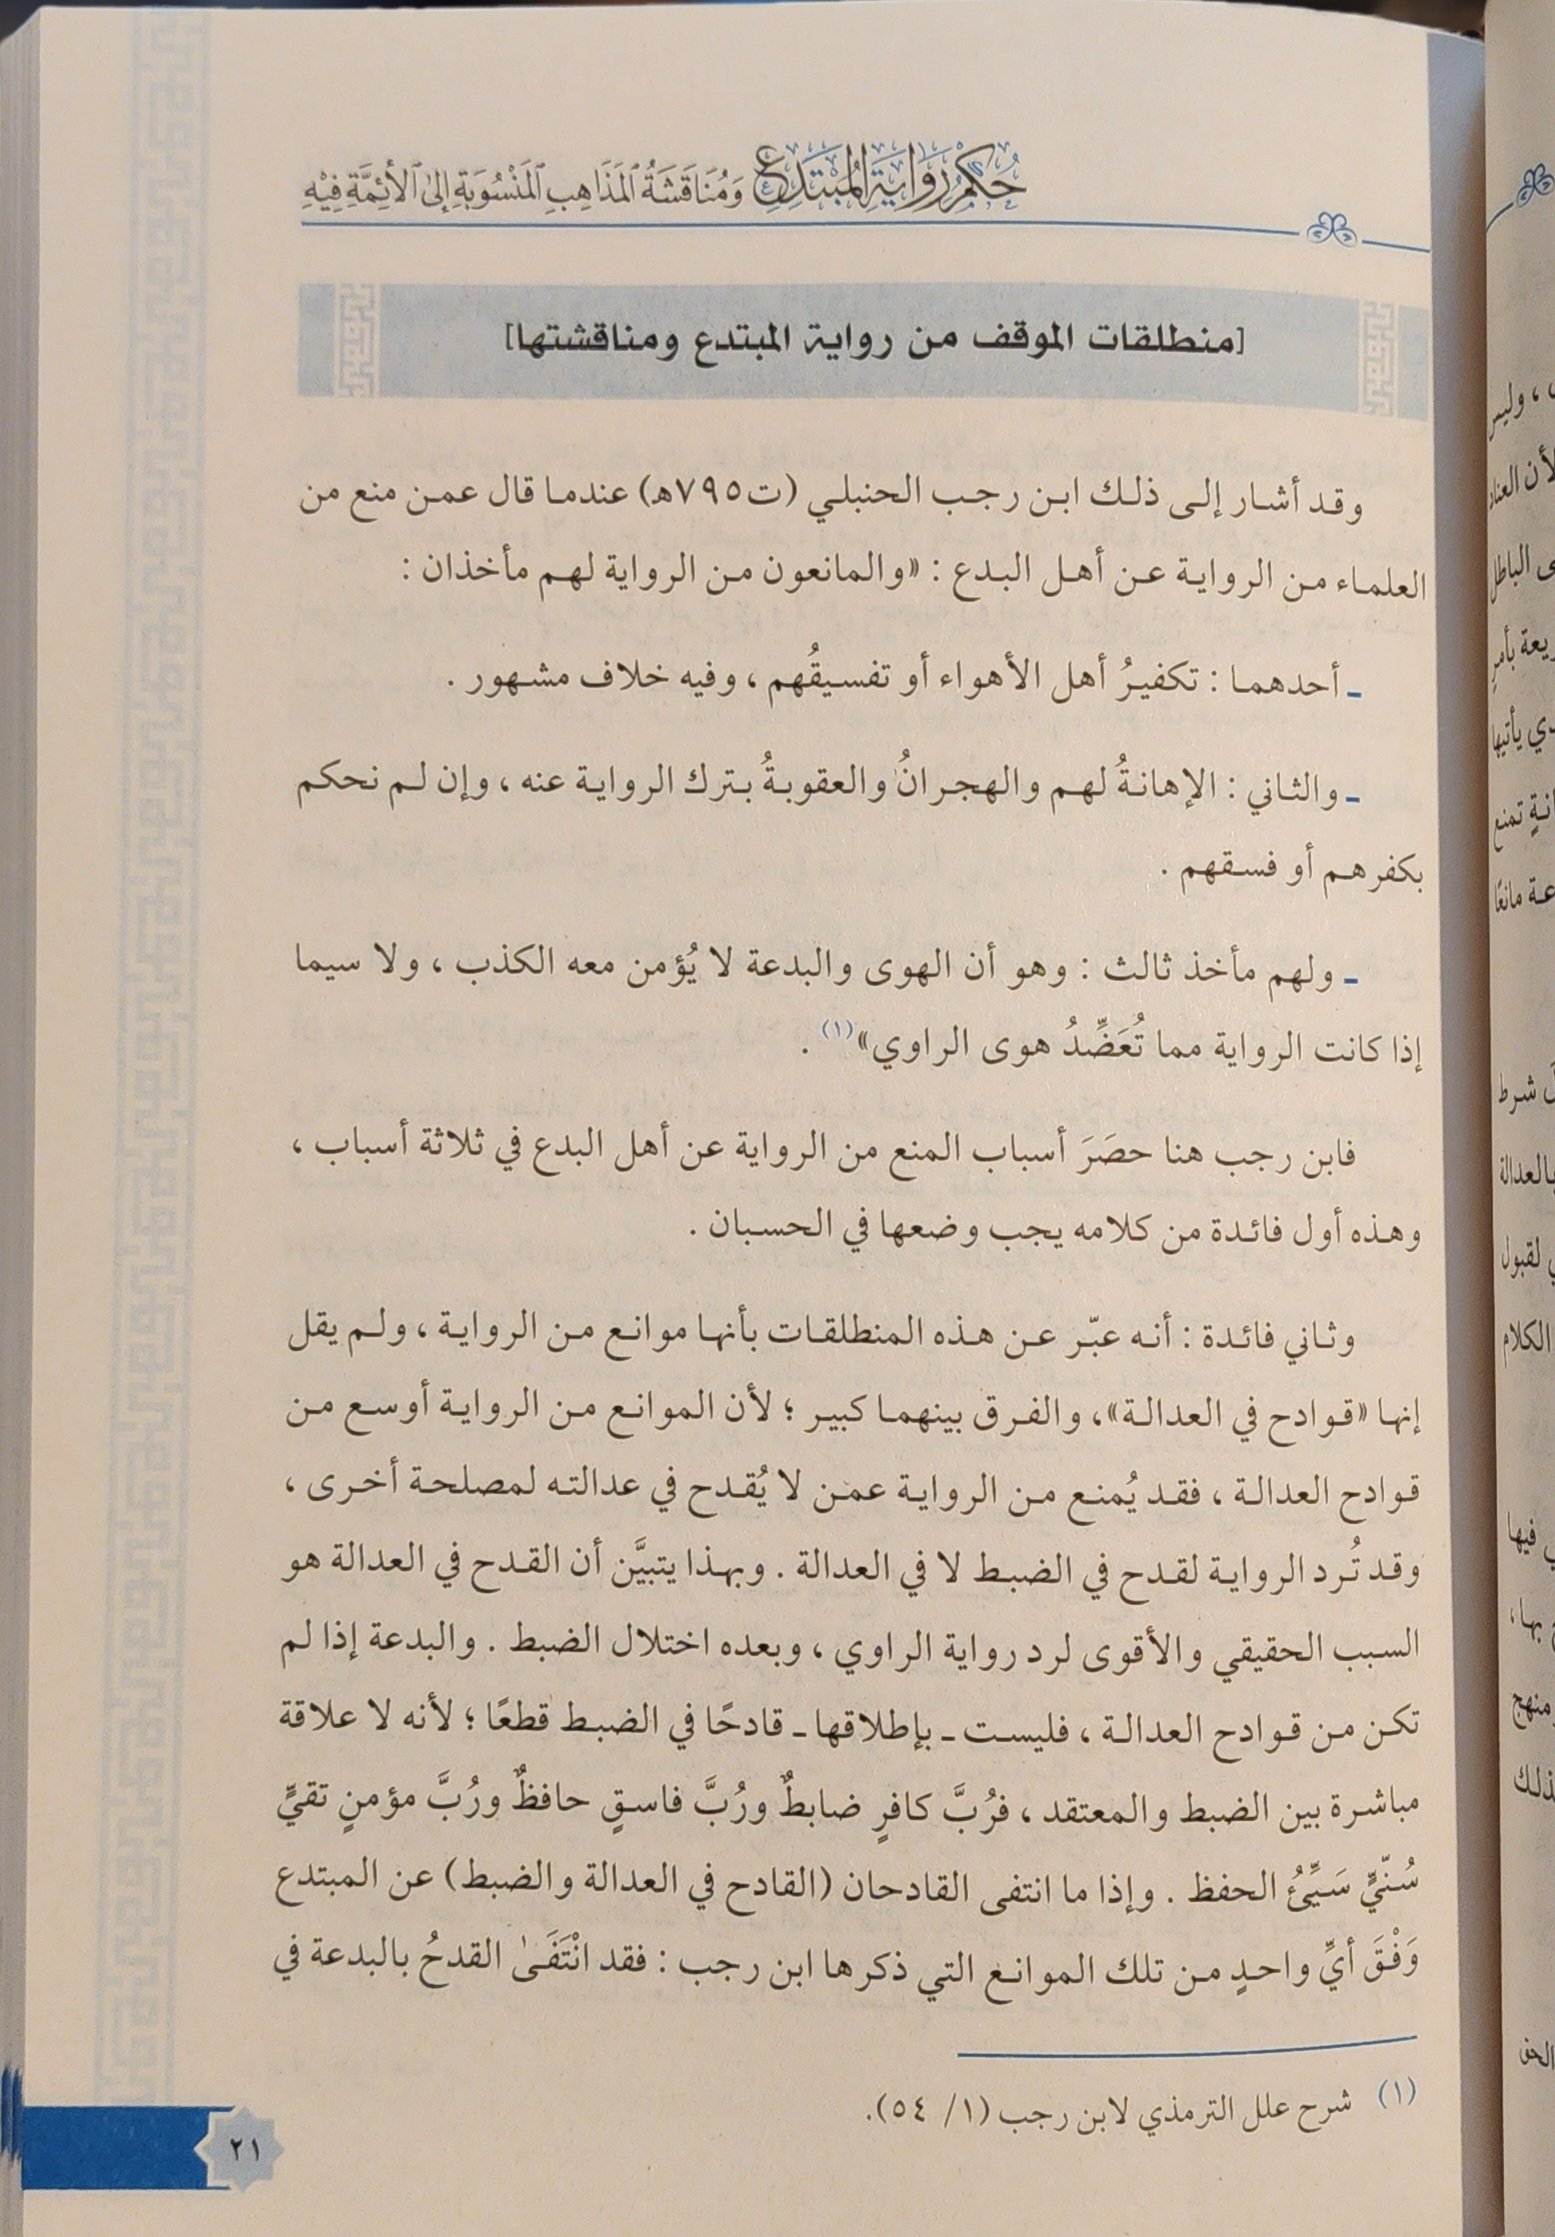 حُكْمُ رِوَايَةِ المُبْتَدِعِ وَمُنَاقَشَةُ المَذَاهِبِ المَنْسُوبَةِ إِلَى الأَئِمَّةِ فِيْهِ
[منطلقات الموقف من رواية المبتدع ومناقشتها]
وقد أشار إلى ذلك ابن رجب الحنبلي (ت٧٩٥هـ) عندما قال عمن منع من
العلماء من الرواية عن أهل البدع : «والمانعون من الرواية لهم مأخذان :
ـ أحدهما : تكفيرُ أهل الأهواء أو تفسيقُهم ، وفيه خلاف مشهور .
ـ والثاني : الإهانةُ لهم والهجرانُ والعقوبةُ بترك الرواية عنه ، وإن لم نحكم
بكفرهم أو فسقهم .
ـ ولهم مأخذ ثالث : وهو أن الهوى والبدعة لا يُؤمن معه الكذب ، ولا سيما
إذا كانت الرواية مما تُعَضِّدُ هوى الراوي»(١) .
فابن رجب هنا حصَرَ أسباب المنع من الرواية عن أهل البدع في ثلاثة أسباب ،
وهذه أول فائدة من كلامه يجب وضعها في الحسبان .
وثاني فائدة : أنه عبّر عن هذه المنطلقات بأنها موانع من الرواية ، ولم يقل
إنها «قوادح في العدالة»، والفرق بينهما كبير ؛ لأن الموانع من الرواية أوسع من
قوادح العدالة ، فقد يُمنع من الرواية عمن لا يُقدح في عدالته لمصلحة أخرى ،
وقد تُرد الرواية لقدح في الضبط لا في العدالة . وبهذا يتبيَّن أن القدح في العدالة هو
السبب الحقيقي والأقوى لرد رواية الراوي ، وبعده اختلال الضبط . والبدعة إذا لم
تكن من قوادح العدالة ، فليست ـ بإطلاقها ـ قادحًا في الضبط قطعًا ؛ لأنه لا علاقة
مباشرة بين الضبط والمعتقد ، فرُبَّ كافرٍ ضابطٌ ورُبَّ فاسقٍ حافظٌ ورُبَّ مؤمنٍ تقيٍّ
سُنّيٍّ سَيِّئُ الحفظ . وإذا ما انتفى القادحان (القادح في العدالة والضبط) عن المبتدع
وَفْقَ أيِّ واحدٍ من تلك الموانع التي ذكرها ابن رجب : فقد انْتَفَىٰ القدحُ بالبدعة في
(١) شرح علل الترمذي لابن رجب (١/ ٥٤).
٢١